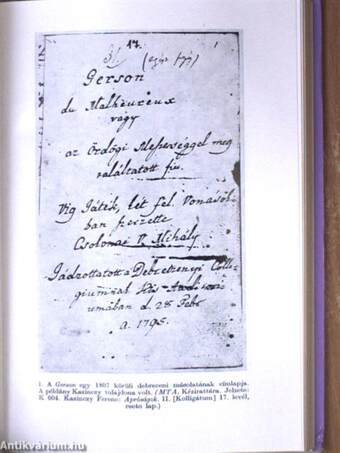 17.
1
Gerson
du Malhèureux
vagy
az Ördögi Mesterséggel meg
találtatott fiu.
Vig Játék, két fel. Vonásók-
ban
Csokonai V. Mihály
Jádzottatott a Debretzenyi Colle-
giumnak
rumában d. 28 Febr
a. 1795.
1. A Gerson egy 1807 körüli debreceni másolatának címlapja.
A példány Kazinczy tulajdona volt. (MTA. Kézirattára. Jelzete:
K 604. Kazinczy Ferenc: Apróságok. II. [Kolligátum] 17. levél,
recto lap.)
Antikvarium.hu